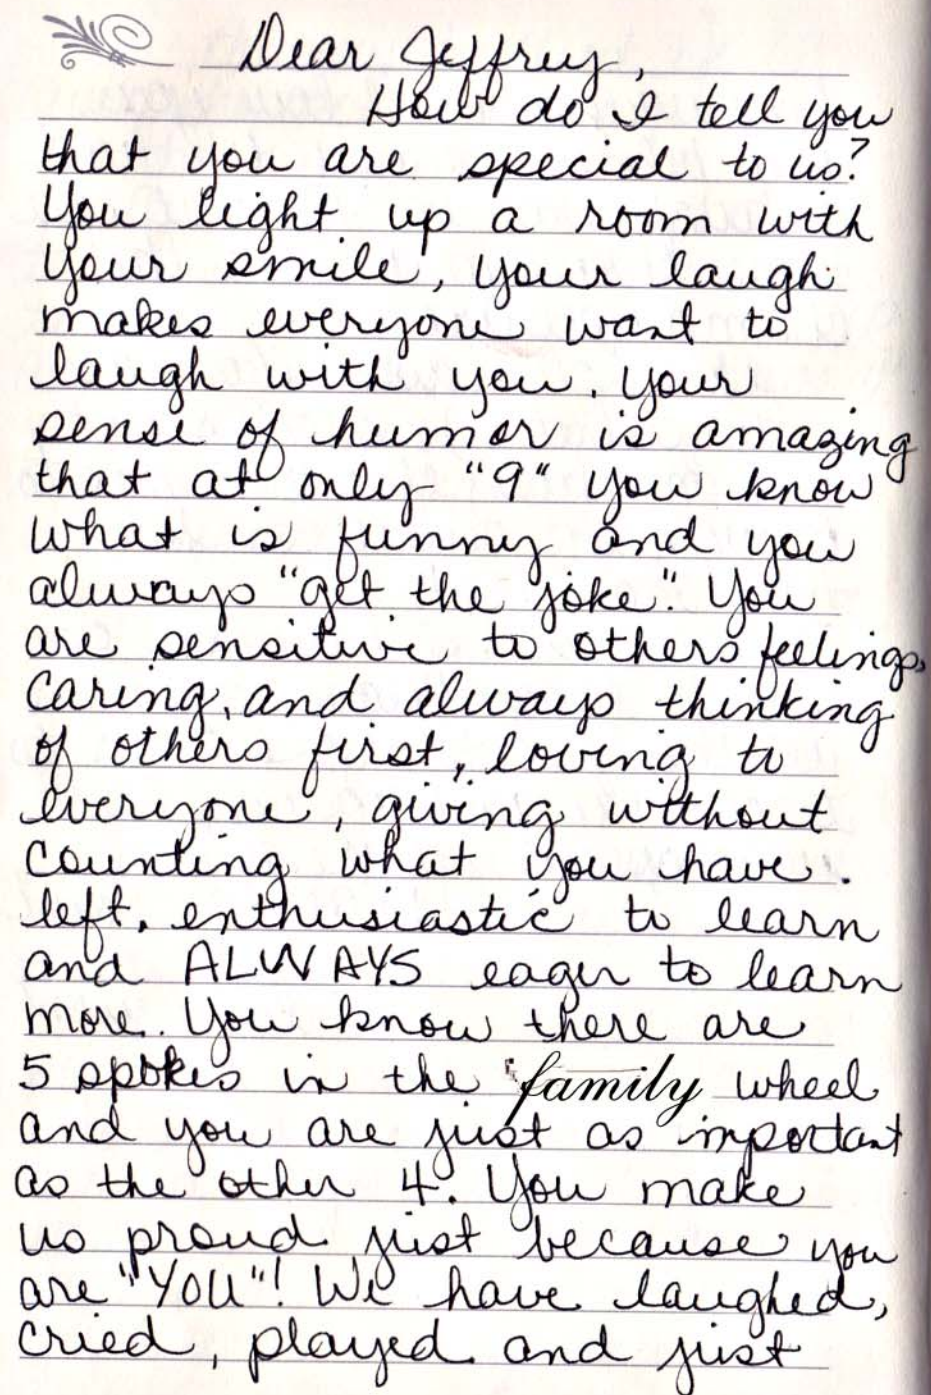 Dear Jeffrey,
How do I tell you
that you are special to us?
You light up a room with
your smile, your laugh
makes everyone want to
laugh with you. Your
sense of humor is amazing
that at only "9" you know
what is funny and you
always "get the joke". You
are sensitive to others feelings,
caring, and always thinking
of others first, loving to
everyone, giving without
counting what you have
left, enthusiastic to learn
and ALWAYS eager to learn
more. You know there are
5 spokes in the family wheel
and you are just as important
as the other 4. You make
us proud just because you
are "YOU"! We have laughed,
cried, played and just